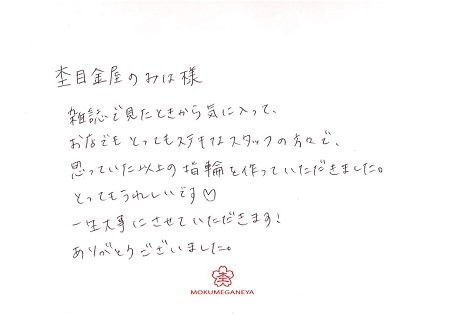 杢目金屋のみは様
雑誌で見たときから気に入って、
おなでもとってもステキなスタッフの方々で、
思っていた以上の指輪を作っていただきました。
とってもうれしいです♡
一生大事にさせていただきます!
ありがとうございました。
杢
MOKUMEGANEYA